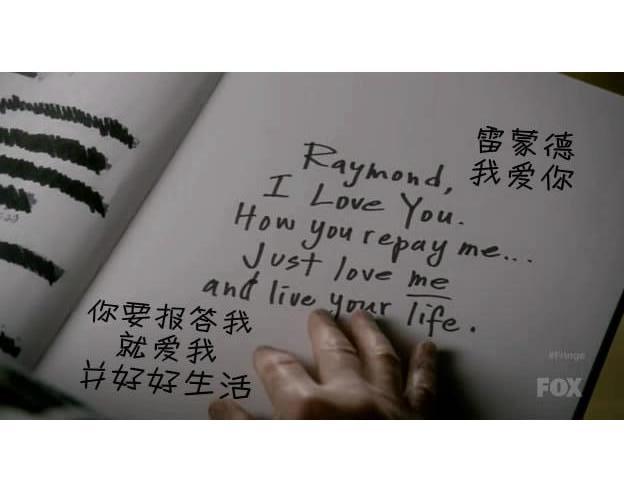 Raymond,
I Love You.
How you repay me...
Just love me
and live your life.
雷蒙德
我爱你
你要报答我
就爱我
并好好生活
#Fringe
FOX